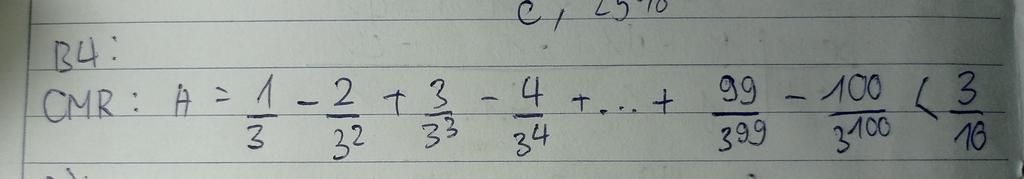 c, 25%
B4:
CMR: A = 1/3 - 2/3² + 3/3³ - 4/3⁴ + ... + 99/3⁹⁹ - 100/3¹⁰⁰ < 3/16